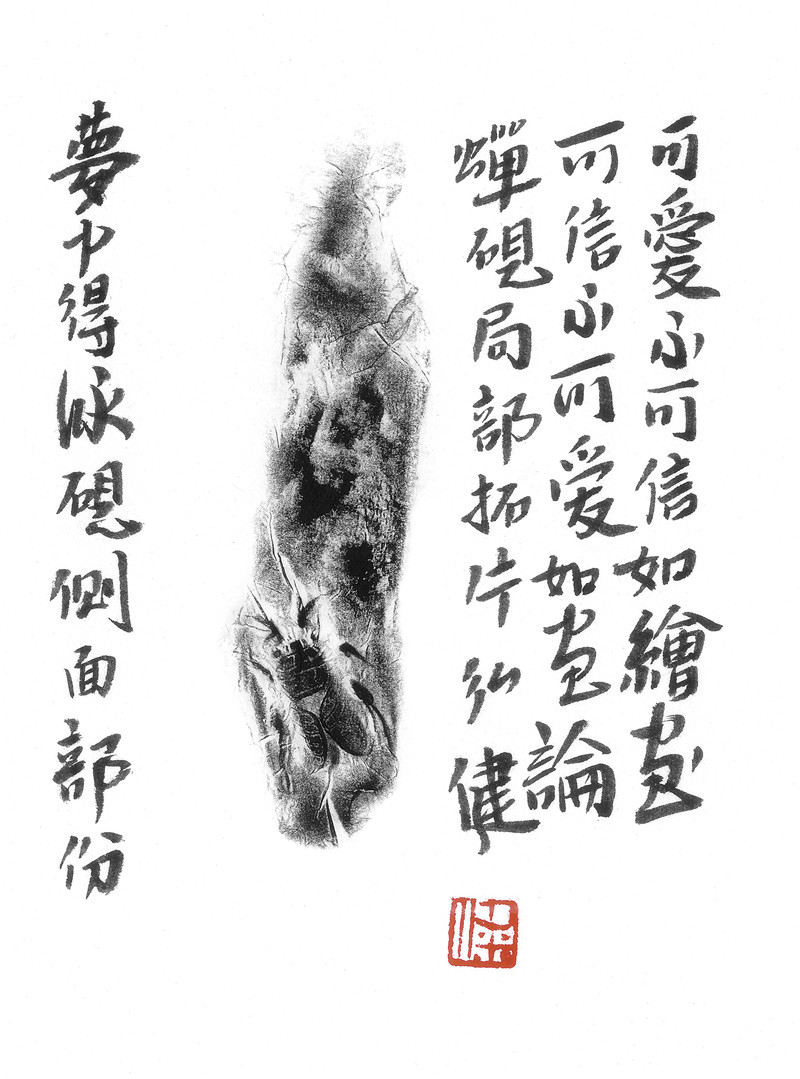 可愛不可信如繪畫
可信不可爱如畫論
蟬硯局部拓片弘健
夢中得泳硯側面部份